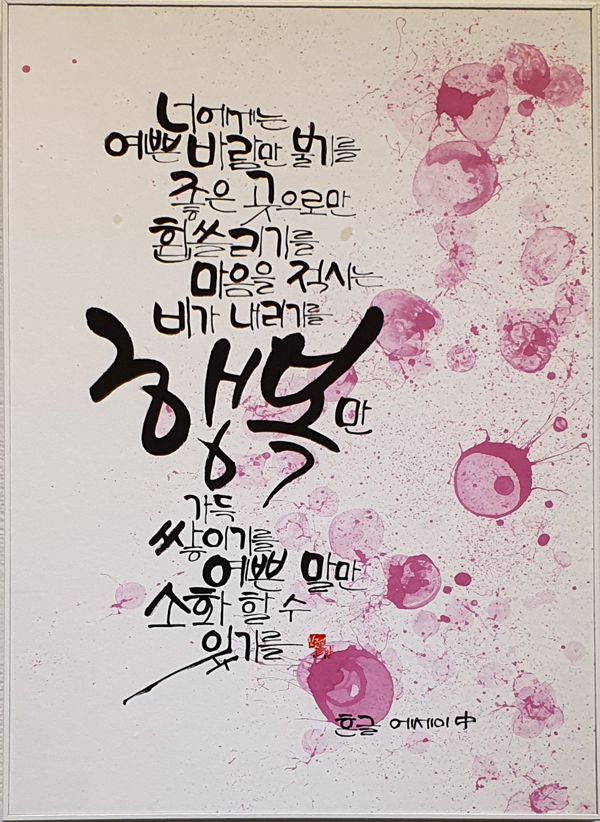 너에게는
예쁜 바람만 불기를
좋은 곳으로만
휩쓸리기를
마음을 적시는
비가 내리기를
행복만
가득
쌓이기를
예쁜 말만
소화 할 수
있기를
흔글 에세이 中